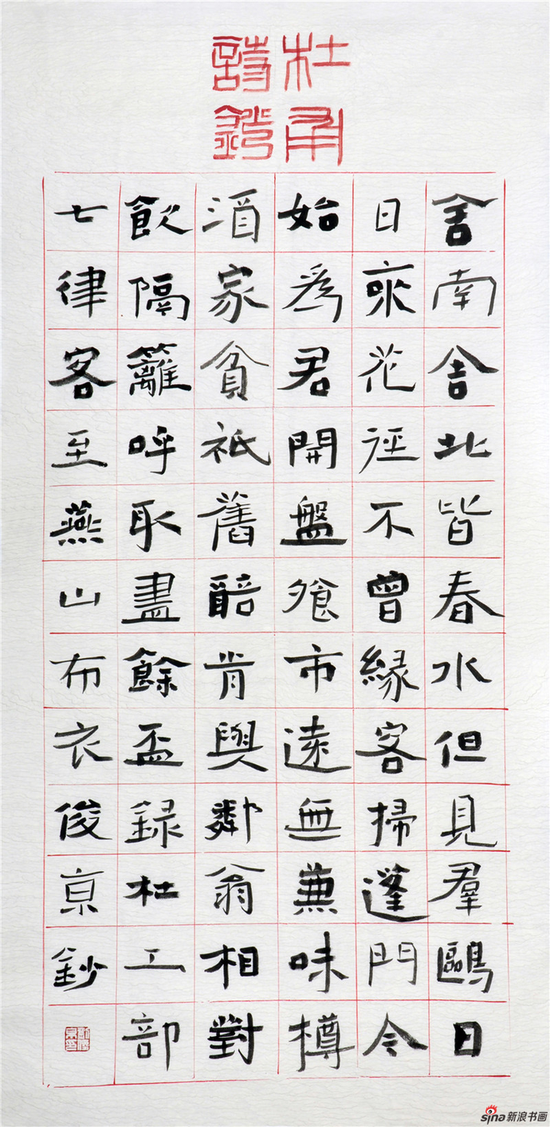 杜甫
詩鈔
舍南舍北皆春水但見羣鷗日
日來花徑不曾緣客掃蓬門今
始爲君開盤飧市遠無兼味樽
酒家貧祇舊醅肯與鄰翁相對
飲隔籬呼取盡餘盃錄杜工部
七律客至燕山布衣俊京鈔
sina新浪书画